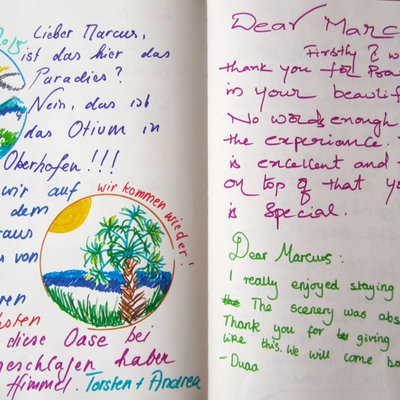 2015
Lieber Marcus,
ist das hier das
Paradies?
Nein, das ist
das Otium in
Oberhofen!!!
wir auf
dem
von
wir kommen wieder!
diese Oase bei
geschlafen haben
Himmel. Torsten + Andrea
Dear Marc
Firstly I w
thank you for
in your beautif
No words enough
the experience.
is excellent and
on top of that yo
is Special.
Dear Marcus:
I really enjoyed staying
The scenery was abs
Thank you for giving
like this. We will come ba
- Duaa